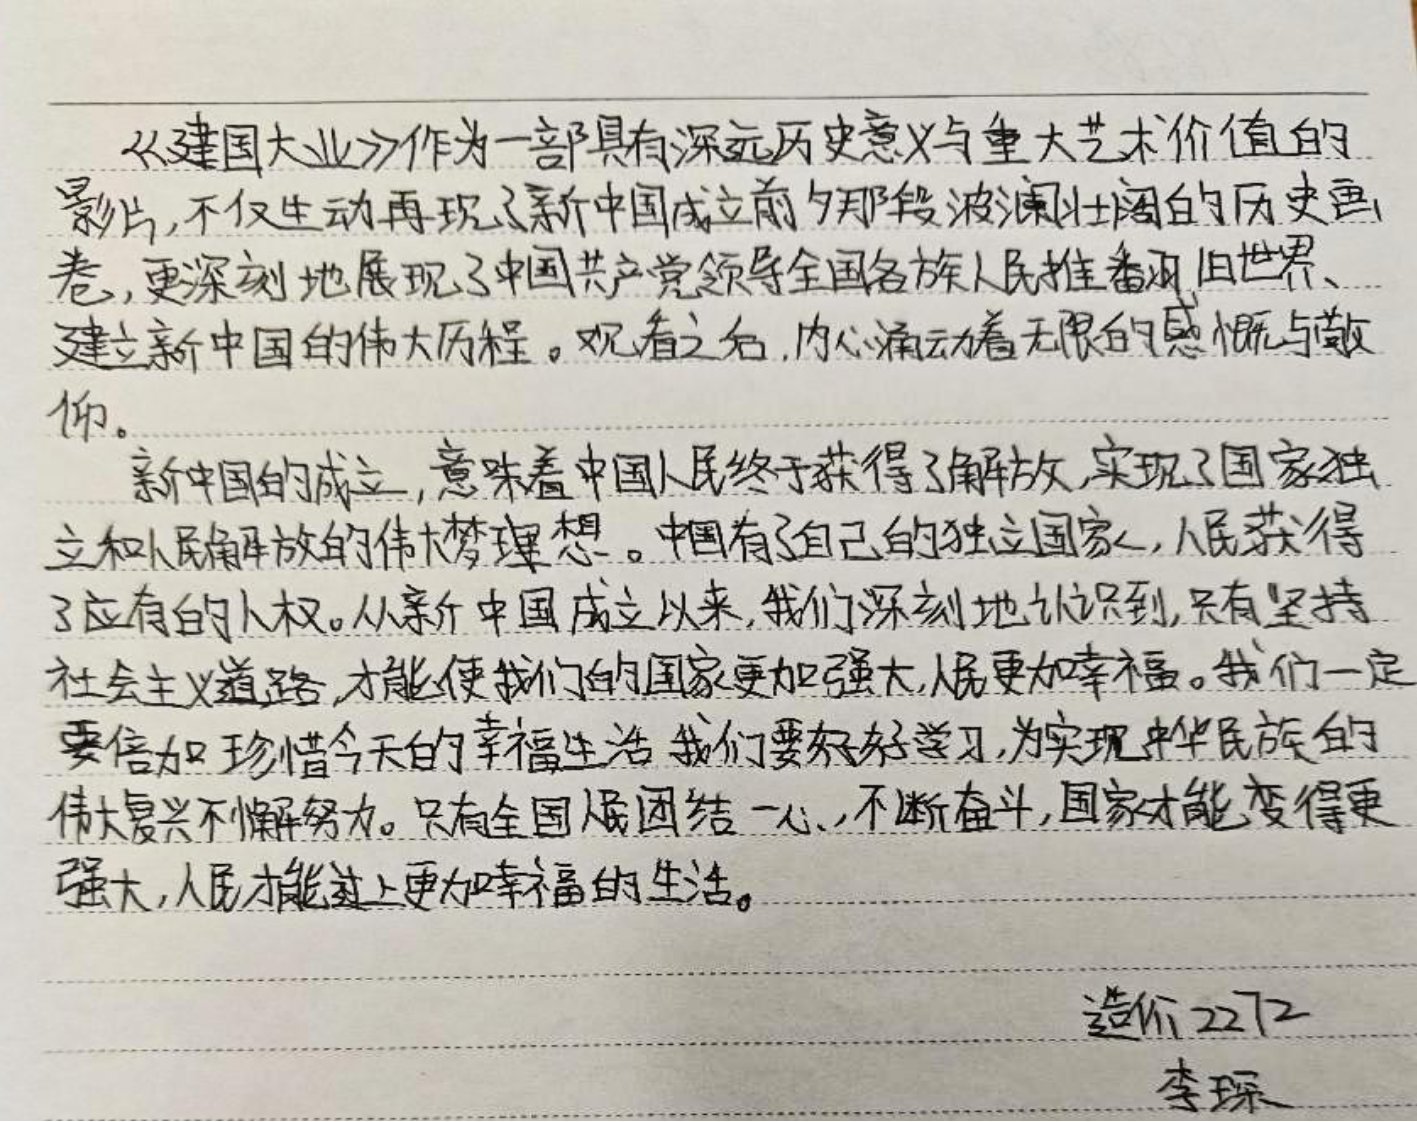 《建国大业》作为一部具有深远历史意义与重大艺术价值的
影片,不仅生动再现了新中国成立前夕那段波澜壮阔的历史画
卷,更深刻地展现了中国共产党领导全国各族人民推翻旧世界、
建立新中国的伟大历程。观看之后,内心涌动着无限的感慨与敬
仰。
新中国的成立,意味着中国人民终于获得了解放,实现了国家独
立和人民解放的伟大梦理想。中国有了自己的独立国家,人民获得
了应有的人权。从新中国成立以来,我们深刻地认识到,只有坚持
社会主义道路,才能使我们的国家更加强大,人民更加幸福。我们一定
要倍加珍惜今天的幸福生活 我们要好好学习,为实现中华民族的
伟大复兴不懈努力。只有全国人民团结一心,不断奋斗,国家才能变得更
强大,人民才能过上更加幸福的生活。
造价2272
李琛